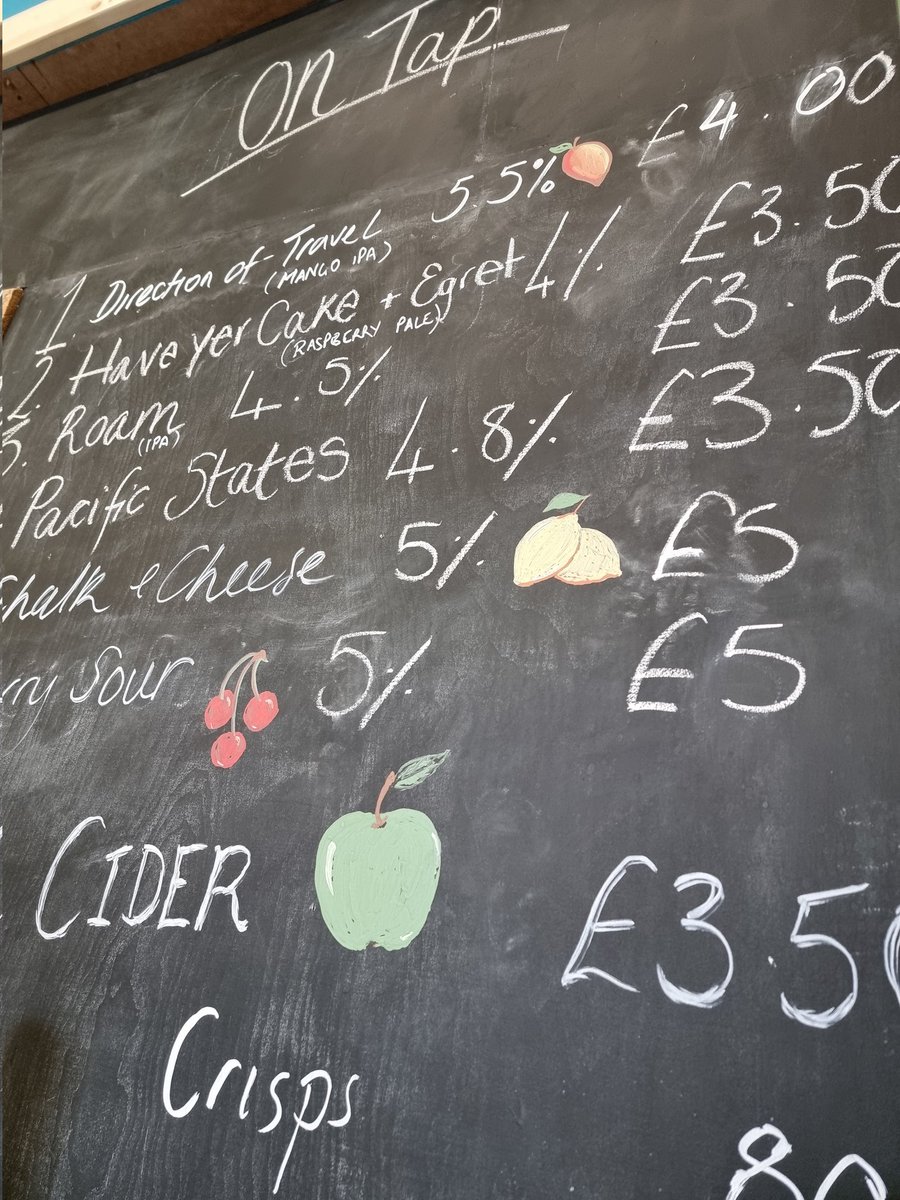 On Tap
1. Direction of Travel 5.5% £4.00
(MANGO IPA)
2. Have yer Cake + Egret 4% £3.50
(RASPBERRY PALE)
3. Roam 4.5% £3.50
(IPA)
Pacific States 4.8% £3.50
Chalk & Cheese 5% £5
rry Sour 5% £5
CIDER £3.50
Crisps 80